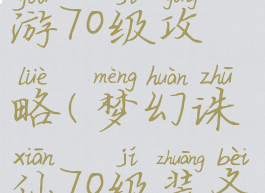 游70级攻
lüè mèng huàn zhū
略(梦幻诛
xiān jí zhuāng bèi
仙70级装备